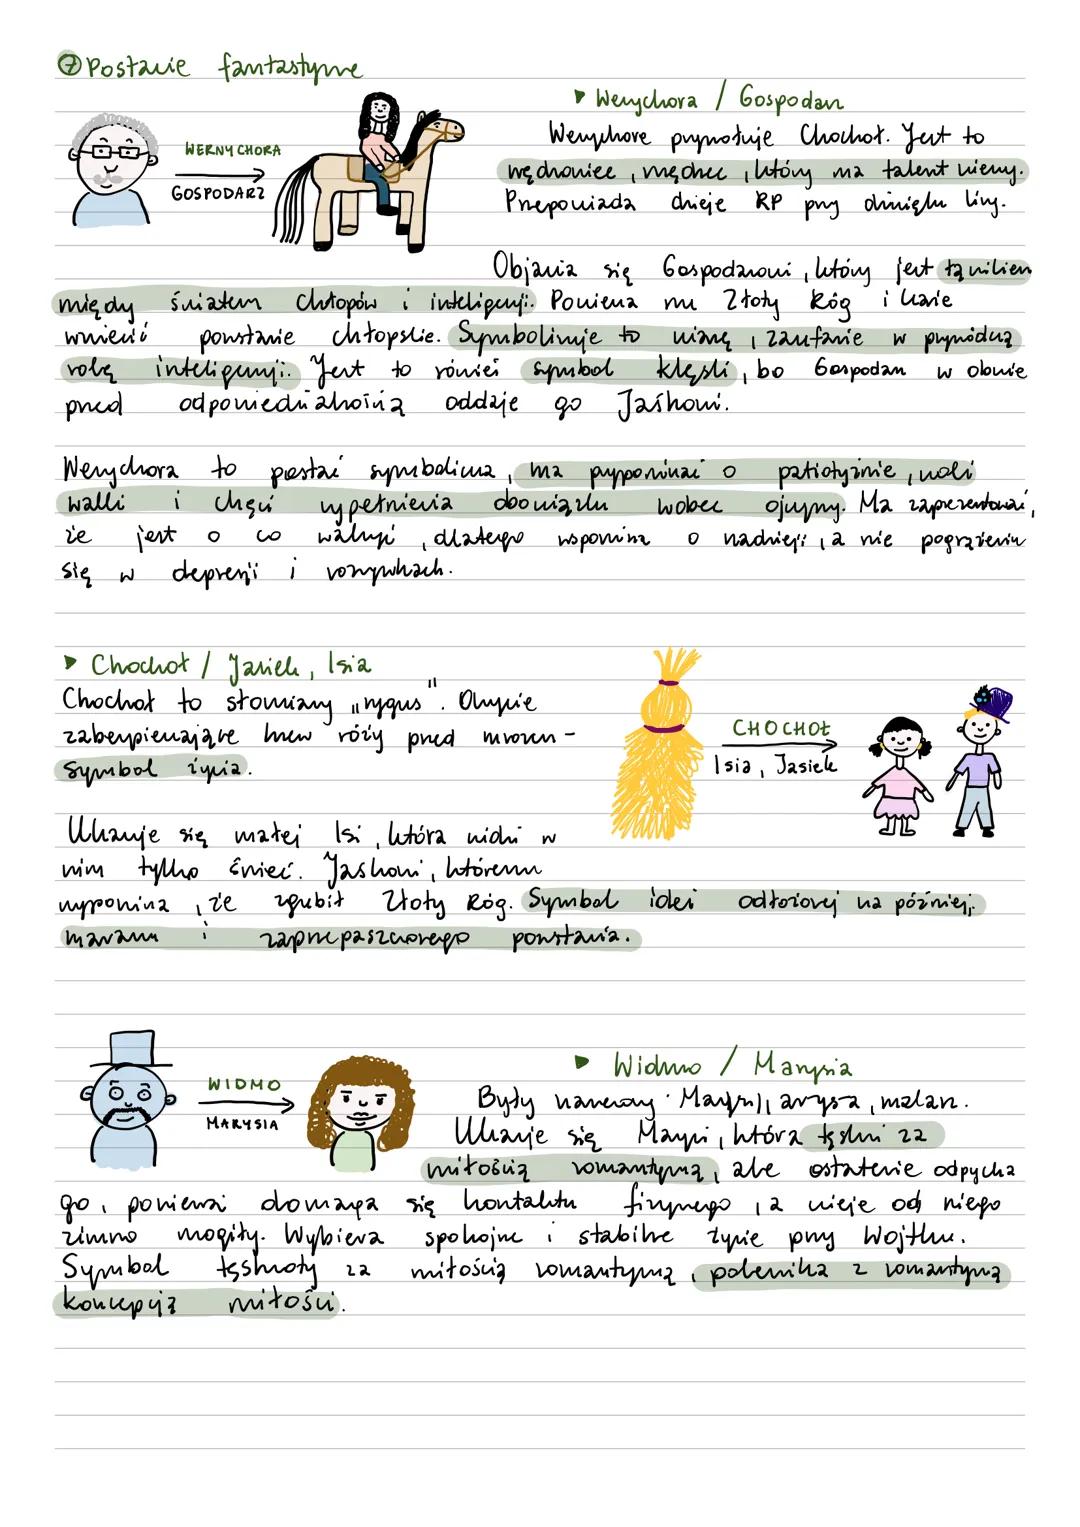 ⑦ Postacie fantastyczne
▸ Wernychora / Gospodarz
WERNYCHORA
GOSPODARZ
Wernyhorę przynotuje Chochoł. Jest to
wędrowiec, mędrzec, który ma talent wieszczy.
Przepowiada dzieje RP przy dźwięku liry.
Objawia się Gospodarowi, który jest łącznikiem
między światem chłopów i inteligencji. Powierza mu Złoty Róg i każe
wzniecić powstanie chłopskie. Symbolizuje to wiarę, zaufanie w przywódczą
rolę inteligencji. Jest to również symbol klęski, bo Gospodarz w obawie
przed odpowiedzialnością oddaje go Jaśkowi.
Wernychora to postać symboliczna, ma przypominać o patiotyzmie, woli
walki i chęci wypełnienia obowiązku wobec ojczyzny. Ma zaprezentować,
że jest o co walczyć, dlatego wspomina o nadziei, a nie pogrążeniu
się w depresji i rozrywkach.
▸ Chochoł / Jasiek, Isia
Chochoł to słomiany "rygus". Okrycie
zabezpieczające krzew róży przed mrozem -
symbol życia.
CHOCHOŁ
Isia, Jasiek
Ukazuje się małej Isi, która widzi w
nim tylko śmieć. Jaśkowi, któremu
wypomina, że zgubił Złoty Róg. Symbol idei odłożonej na później,
marazmu i zaprzepaszczonego powstania.
WIDMO
MARYSIA
▸ Widmo / Marysia
Były narzeczony Marysi, artysta, malarz.
Ukazuje się Marysi, która tęskni za
miłością romantyczną, ale ostatecznie odpycha
go, ponieważ domaga się kontaktu fizycznego, a wieje od niego
zimno mogiły. Wybiera spokojne i stabilne życie przy Wojtku.
Symbol tęsknoty za miłością romantyczną, polemika z romantyczną
koncepcją miłości.